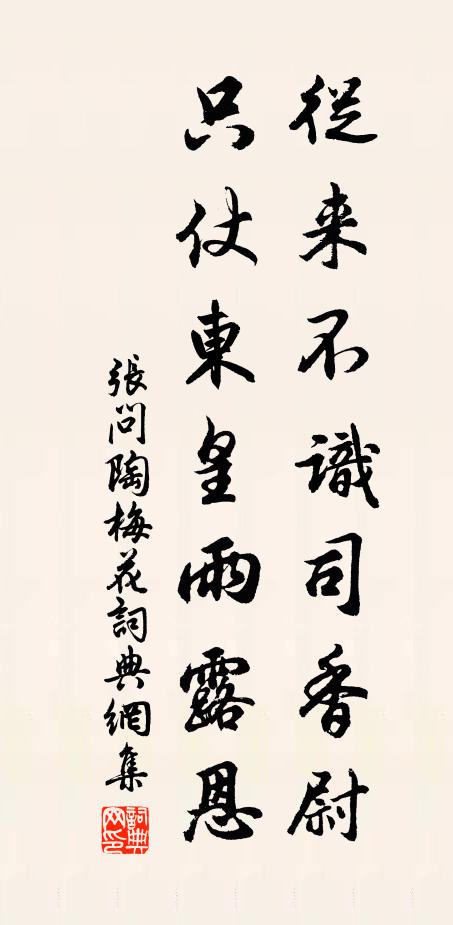 從来不識司香尉
只仗東皇雨露恩
張問陶梅花詞典網集
詞典網印